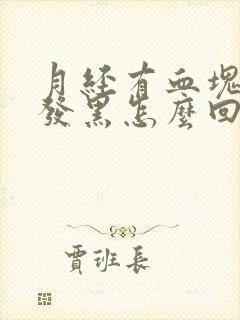 月經有血塊
發黑怎麼回
賈班長